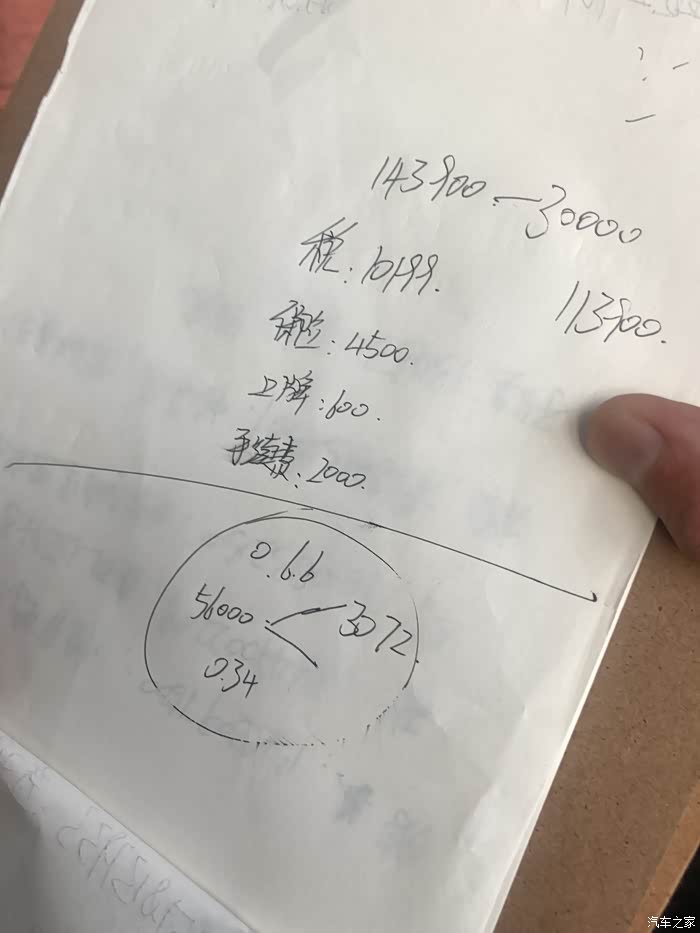 143900.—30000
113900.
税:10199.
保险:4500.
上牌:600.
手续费:2000.
0.66
56000 3072.
0.34
汽车之家